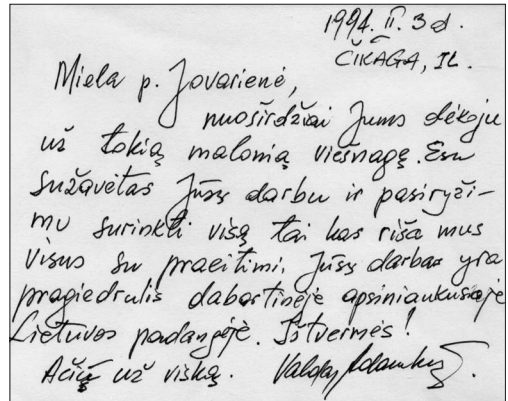 1994. II. 3 d.
ČIKAGA, IL.
Miela p. Jovarienė,
nuoširdžiai Jums dėkoju
už tokią malonią viešnagę. Esu
sužavėtas Jūsų darbu ir pasiryži-
mu surinkti visą tai kas riša mus
visus su praeitimi. Jūsų darbas yra
pragiedrulis dabartinėje apsiniaukusioje
Lietuvos padangėje. Ištvermės!
Ačiū už viską. Valdas Adamkus.